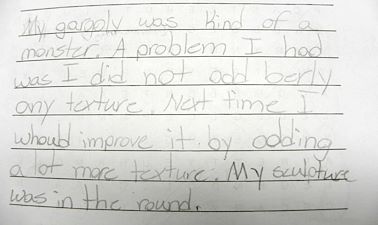 My gargoly was kind of a
monster. A problem I had
was I did not add berly
any texture. Next time I
whould improve it by adding
a lot more texture. My sculpture
was in the round.